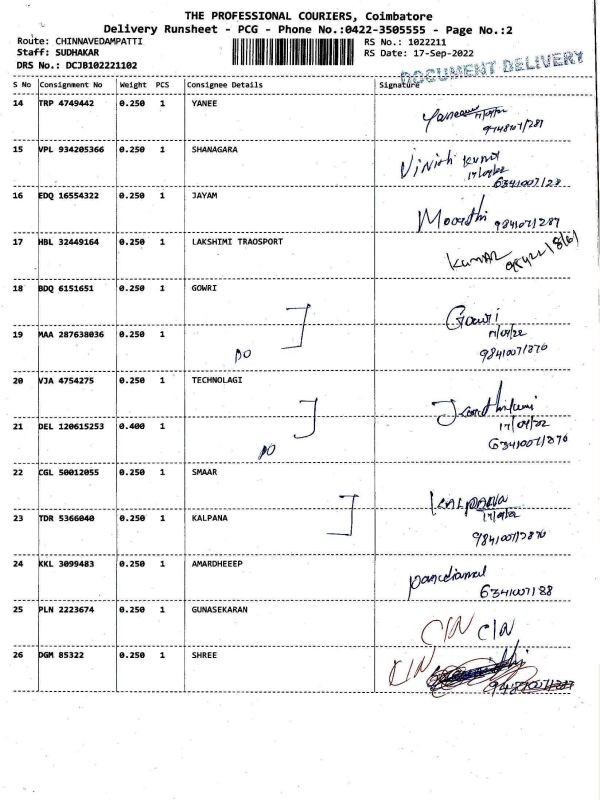 THE PROFESSIONAL COURIERS, Coimbatore
Delivery Runsheet - PCG - Phone No.:0422-3505555 - Page No.:2
Route: CHINNAVEDAMPATTI RS No.: 1022211
Staff: SUDHAKAR RS Date: 17-Sep-2022
DRS No.: DCJB102221102
DOCUMENT DELIVERY
S No Consignment No Weight PCS Consignee Details Signature
14 TRP 4749442 0.250 1 YANEE
15 VPL 934205366 0.250 1 SHANAGARA
Vinith Kumar
17/09/22
16 EDQ 16554322 0.250 1 JAYAM
Moorthi 9841071287
17 HBL 32449164 0.250 1 LAKSHIMI TRAOSPORT
KUMAR
18 BDQ 6151651 0.250 1 GOWRI
Gowri
19 MAA 287638036 0.250 1
DO
17/09/22
98410071870
20 VJA 4754275 0.250 1 TECHNOLAGI
21 DEL 120615253 0.400 1
DO
17/09/22
22 CGL 50012055 0.250 1 SMAAR
KALPANA
17/09/22
23 TDR 5366040 0.250 1 KALPANA
24 KKL 3099483 0.250 1 AMARDHEEEP
25 PLN 2223674 0.250 1 GUNASEKARAN
C/N C/N
26 DGM 85322 0.250 1 SHREE
C/N